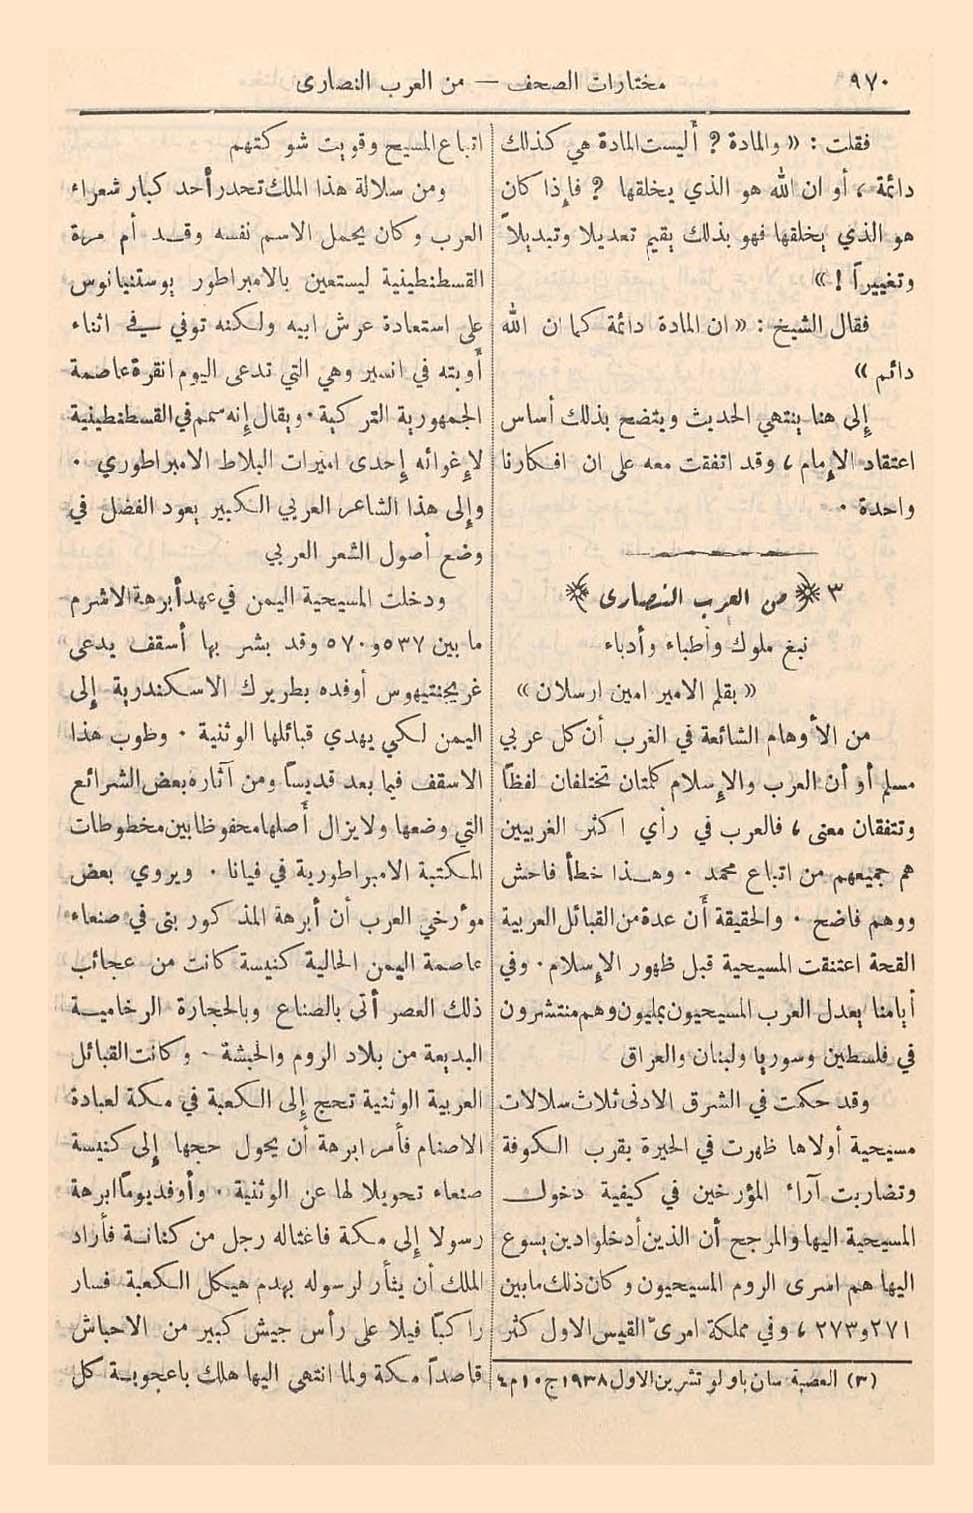 ٩٧٠
مختارات الصحف — من العرب النصارى
فقلت : « والمادة ؟ أليست المادة هي كذلك
دائمة ، أو ان الله هو الذي يخلقها ؟ فإذا كان
هو الذي يخلقها فهو بذلك يقيم تعديلا وتبديلاً
وتغييراً ! »
فقال الشيخ : « ان المادة دائمة كما ان الله
دائم »
إلى هنا ينتهي الحديث ويتضح بذلك أساس
اعتقاد الإمام ، وقد اتفقت معه على ان افكارنا
واحدة .
٣ ﴿ من العرب النصارى ﴾
نبغ ملوك وأطباء وأدباء
« بقلم الامير امين ارسلان »
من الأوهام الشائعة في الغرب أن كل عربي
مسلم أو أن العرب والإسلام كلمتان تختلفان لفظاً
وتتفقان معنى ، فالعرب في رأي اكثر الغربيين
هم جميعهم من اتباع محمد . وهذا خطأ فاحش
ووهم فاضح . والحقيقة أن عدة من القبائل العربية
القحة اعتنقت المسيحية قبل ظهور الإسلام . وفي
أيامنا يعدل العرب المسيحيون بمليون وهم منتشرون
في فلسطين وسوريا ولبنان والعراق
وقد حكمت في الشرق الادنى ثلاث سلالات
مسيحية أولاها ظهرت في الحيرة بقرب الكوفة
وتضاربت آراء المؤرخين في كيفية دخول
المسيحية اليها والمرجح أن الذين أدخلوا دين يسوع
اليها هم اسرى الروم المسيحيون وكان ذلك ما بين
٢٧١ و ٢٧٣ ، وفي مملكة امرئ القيس الاول كثر
(٣) العصبة سان باولو تشرين الاول ١٩٣٨ ج ١٠ م ٤
اتباع المسيح وقويت شوكتهم
ومن سلالة هذا الملك تحدر أحد كبار شعراء
العرب وكان يحمل الاسم نفسه وقد أم مرة
القسطنطينية ليستعين بالامبراطور يوستنيانوس
على استعادة عرش ابيه ولكنه توفي في اثناء
أوبته في انسير وهي التي تدعى اليوم انقرة عاصمة
الجمهورية التركية . ويقال إنه سمم في القسطنطينية
لإغوائه إحدى اميرات البلاط الامبراطوري .
وإلى هذا الشاعر العربي الكبير يعود الفضل في
وضع أصول الشعر العربي
ودخلت المسيحية اليمن في عهد أبرهة الاشرم
ما بين ٥٣٧ و ٥٧٠ وقد بشر بها أسقف يدعى
غريجنتيهوس أوفده بطريرك الاسكندرية إلى
اليمن لكي يهدي قبائلها الوثنية . وطوب هذا
الاسقف فيما بعد قديساً ومن آثاره بعض الشرائع
التي وضعها ولا يزال أصلها محفوظا بين مخطوطات
المكتبة الامبراطورية في فيانا . ويروي بعض
مؤرخي العرب أن أبرهة المذكور بنى في صنعاء
عاصمة اليمن الحالية كنيسة كانت من عجائب
ذلك العصر أتى بالصناع وبالحجارة الرخامية
البديعة من بلاد الروم والحبشة . وكانت القبائل
العربية الوثنية تحج إلى الكعبة في مكة لعبادة
الاصنام فأمر ابرهة أن يحول حجها إلى كنيسة
صنعاء تحويلا لها عن الوثنية . وأوفد يوماً ابرهة
رسولا إلى مكة فاغتاله رجل من كنانة فأراد
الملك أن يثأر لرسوله بهدم هيكل الكعبة فسار
راكباً فيلا على رأس جيش كبير من الاحباش
قاصداً مكة ولما انتهى اليها هلك باعجوبة كل